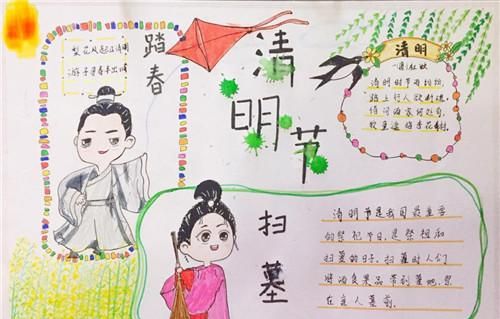 梨花风起正清明
游子寻春半出城
踏春
清明节
清明
杜牧
清明时节雨纷纷,
路上行人欲断魂。
借问酒家何处有,
牧童遥指杏花村。
扫墓
清明节是我国最重要
的祭祀节日,是祭祖和
扫墓的日子。扫墓时人们
将酒食果品带到墓地,
在主人墓前。